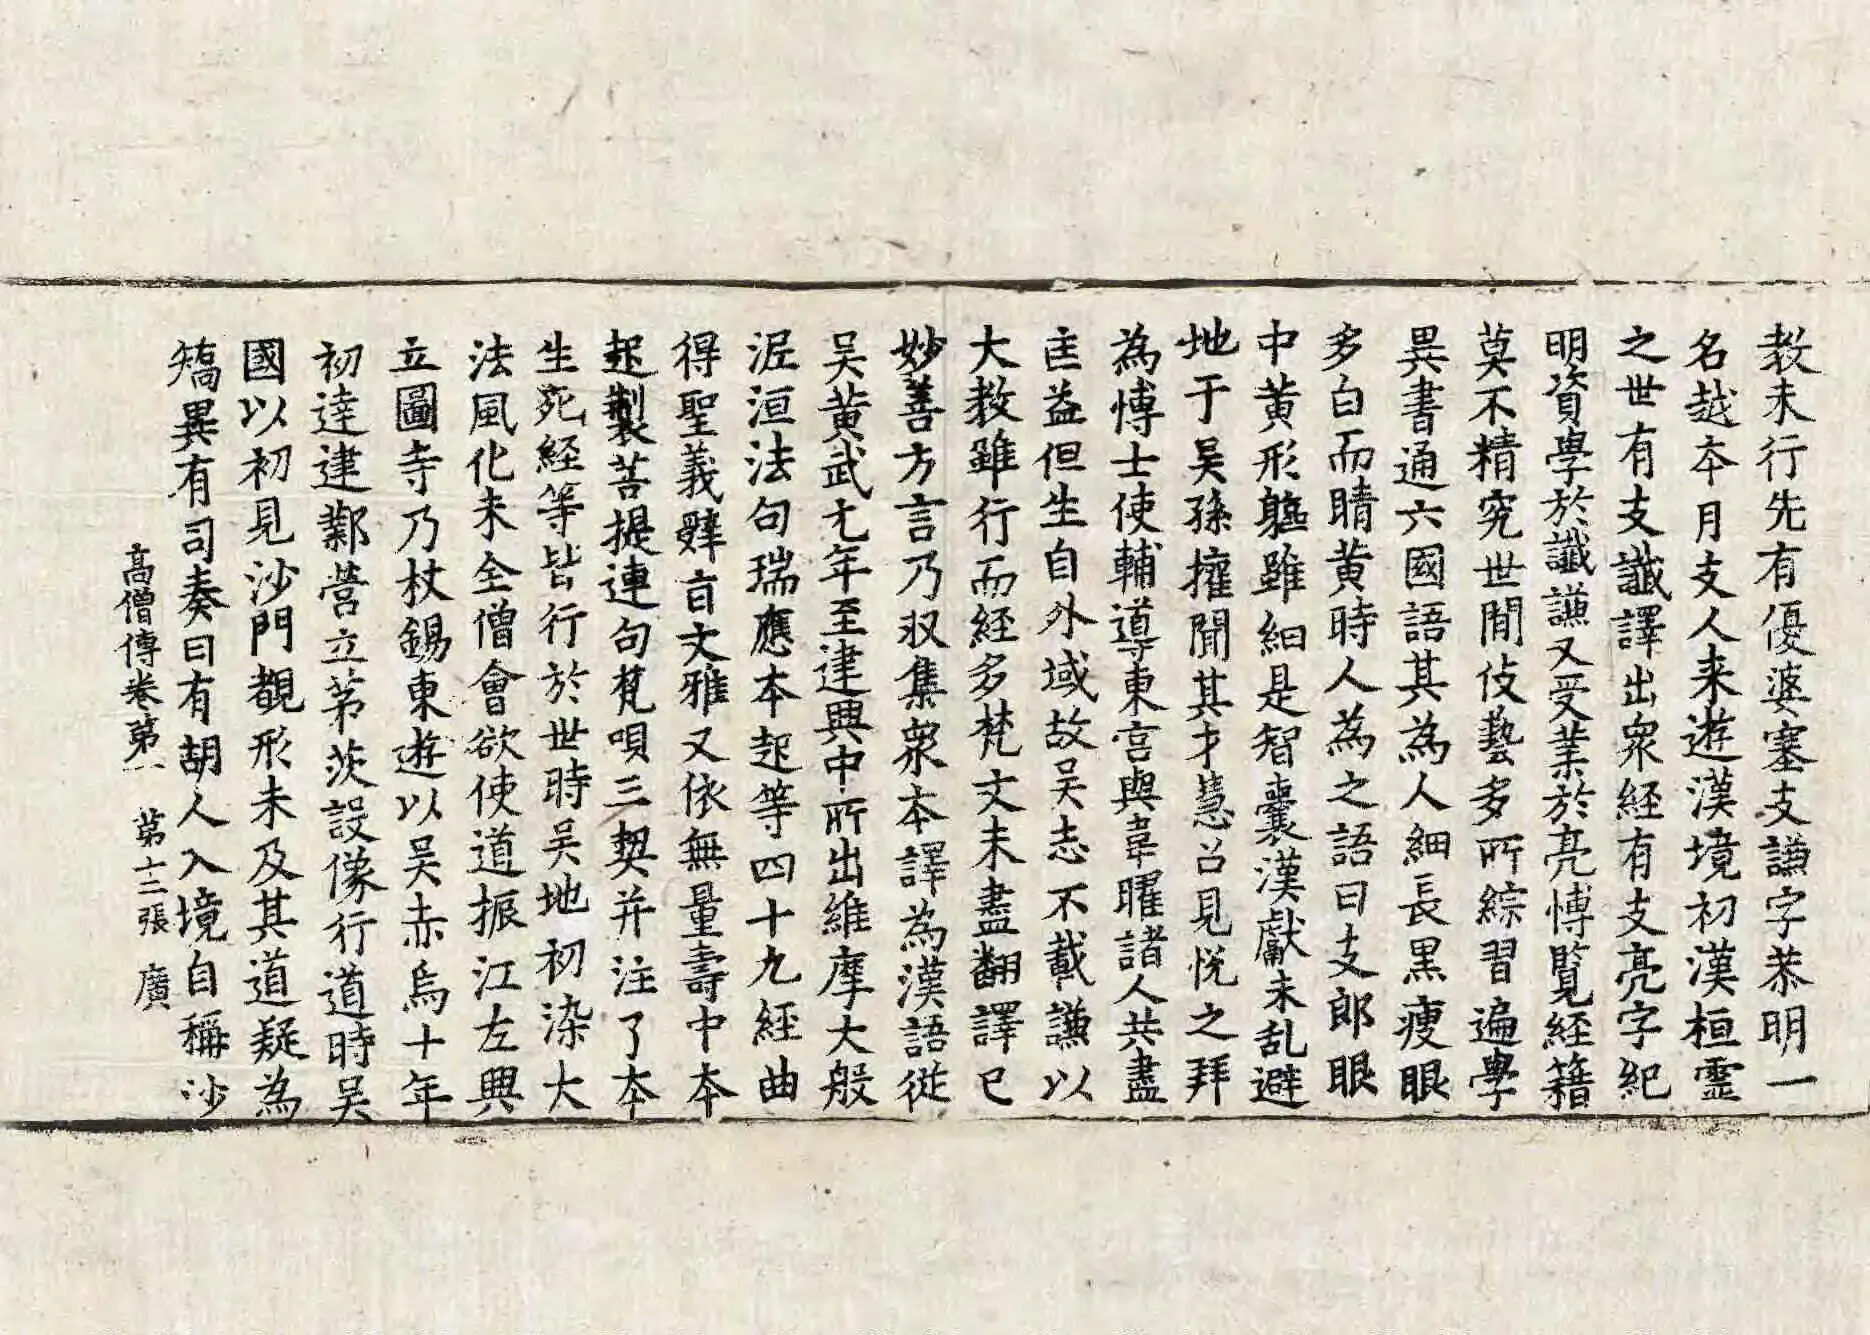 教未行先有優婆塞支謙字恭明一
名越本月支人来遊漢境初漢桓霊
之世有支讖譯出衆経有支亮字紀
明資學於讖謙又受業於亮愽覧経籍
莫不精究世間伎藝多所綜習遍學
異書通六國語其為人細長黒瘦眼
多白而睛黄時人為之語曰支郎眼
中黄形軀雖細是智嚢漢獻末乱避
地于吴孫擁聞其才慧召見恱之拜
為愽士使輔導東宫與韋曜諸人共盡
匡益但生自外域故吴志不載謙以
大教雖行而経多梵文未盡翻譯已
妙善方言乃収集衆本譯為漢語従
吴黄武元年至建興中所出維摩大般
泥洹法句瑞應本起等四十九経曲
得聖義辤旨文雅又依無量壽中本
起製菩提連句梵唄三契并注了本
生死経等皆行於世時吴地初染大
法風化未全僧會欲使道振江左興
立圖寺乃杖錫東遊以吴赤烏十年
初達建鄴營立茅茨設像行道時吴
國以初見沙門覩形未及其道疑為
矯異有司奏曰有胡人入境自稱沙
高僧傳卷第一 第十二張 廣